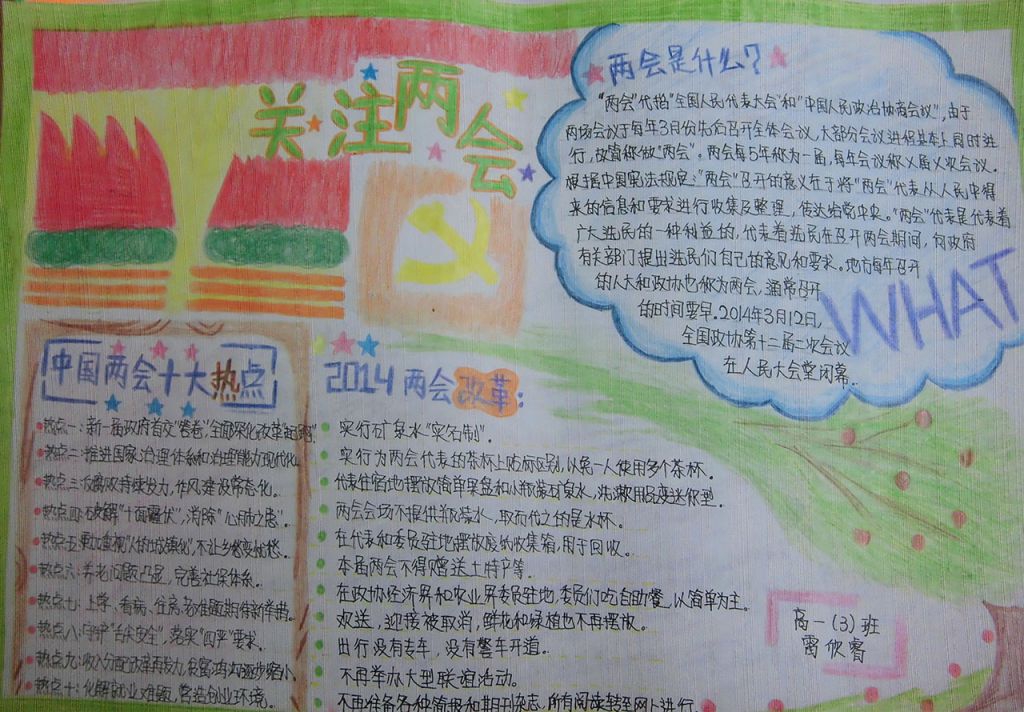 关注两会
两会是什么？
"两会"代指"全国人民代表大会"和"中国人民政治协商会议"，由于
两场会议于每年3月份先后召开全体会议，大部分会议进程基本上同时进
行，故简称做"两会"。两会每5年称为一届，每年会议称X届X次会议。
根据中国宪法规定："两会"召开的意义在于将"两会"代表从人民中得
来的信息和要求进行收集及整理，传达给党中央。"两会"代表是代表着
广大选民的一种利益的，代表着选民在召开两会期间，向政府
有关部门提出选民们自己的意见和要求。地方每年召开
的人大和政协也称为两会，通常召开
的时间要早。2014年3月12日，
全国政协第十二届二次会议
在人民大会堂闭幕..
WHAT
中国两会十大热点
热点一：新一届政府首交"答卷"，全面深化改革
热点二：推进国家治理体系和治理能力现代化
热点三：反腐败持续发力，作风建设常态化。
热点四：破解"十面霾伏"，消除"心肺之患"。
热点五：更加重视"人的城镇化"，不让乡愁变
热点六：养老问题凸显，完善社保体系。
热点七：上学、看病、住房老难题期待新举措。
热点八：守护"舌尖安全"，落实"四严"要求。
热点九：收入分配改革再发力，贫富鸿沟逐步缩小
热点十：化解就业难题，营造创业环境。
2014两会改革：
实行矿泉水"实名制"。
实行为两会代表的茶杯上贴标区别，以免一人使用多个茶杯。
代表住宿地摆放简单果盘和小瓶装矿泉水，洗漱用品变迷你型。
两会会场不提供瓶装水，取而代之的是水杯。
在代表和委员驻地摆放废纸收集箱，用于回收。
本届两会不得赠送土特产等。
在政协经济界和农业界委员驻地，委员们吃自助餐，以简单为主。
欢送，迎接被取消，鲜花和绿植也不再摆放。
出行没有专车，没有警车开道。
不再举办大型联谊活动。
不再准备各种简报和期刊杂志，所有阅读转至网上进行
高一(3)班
雷欣睿